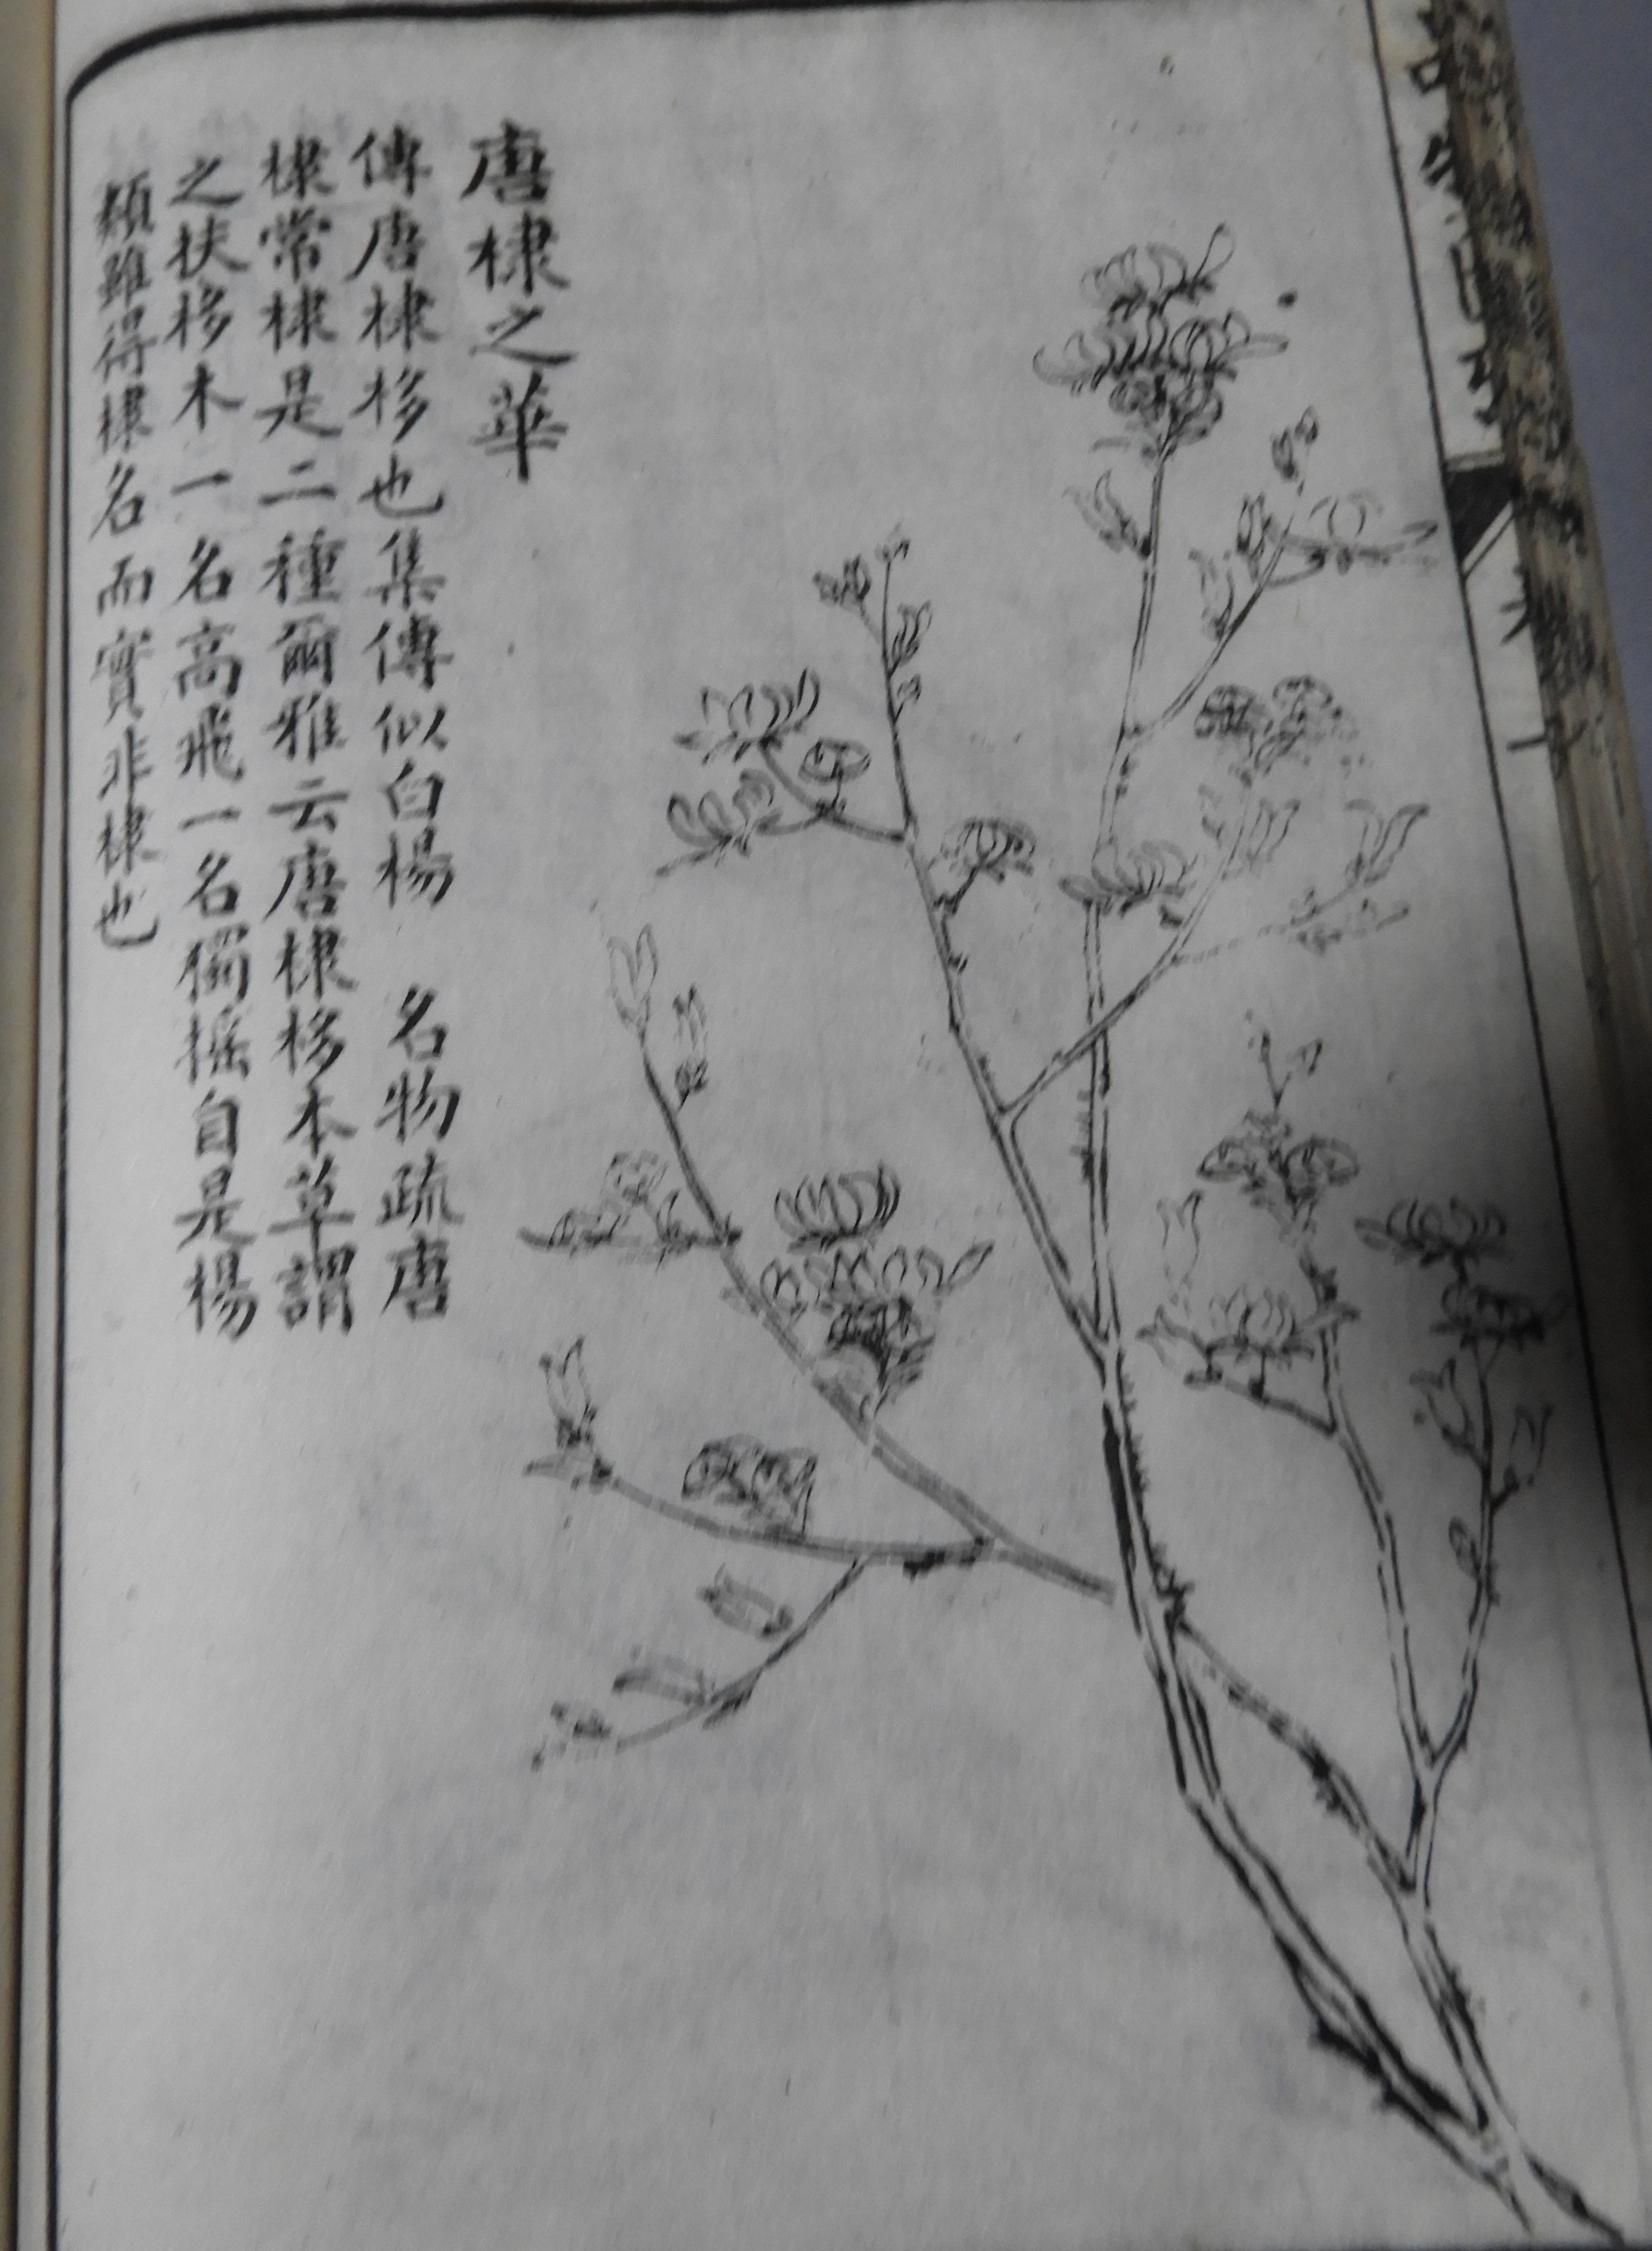 唐棣之華
傳唐棣栘也集傳似白楊　名物疏唐
棣常棣是二種爾雅云唐棣栘本草謂
之扶栘木一名高飛一名獨搖自是楊
類雖得棣名而實非棣也